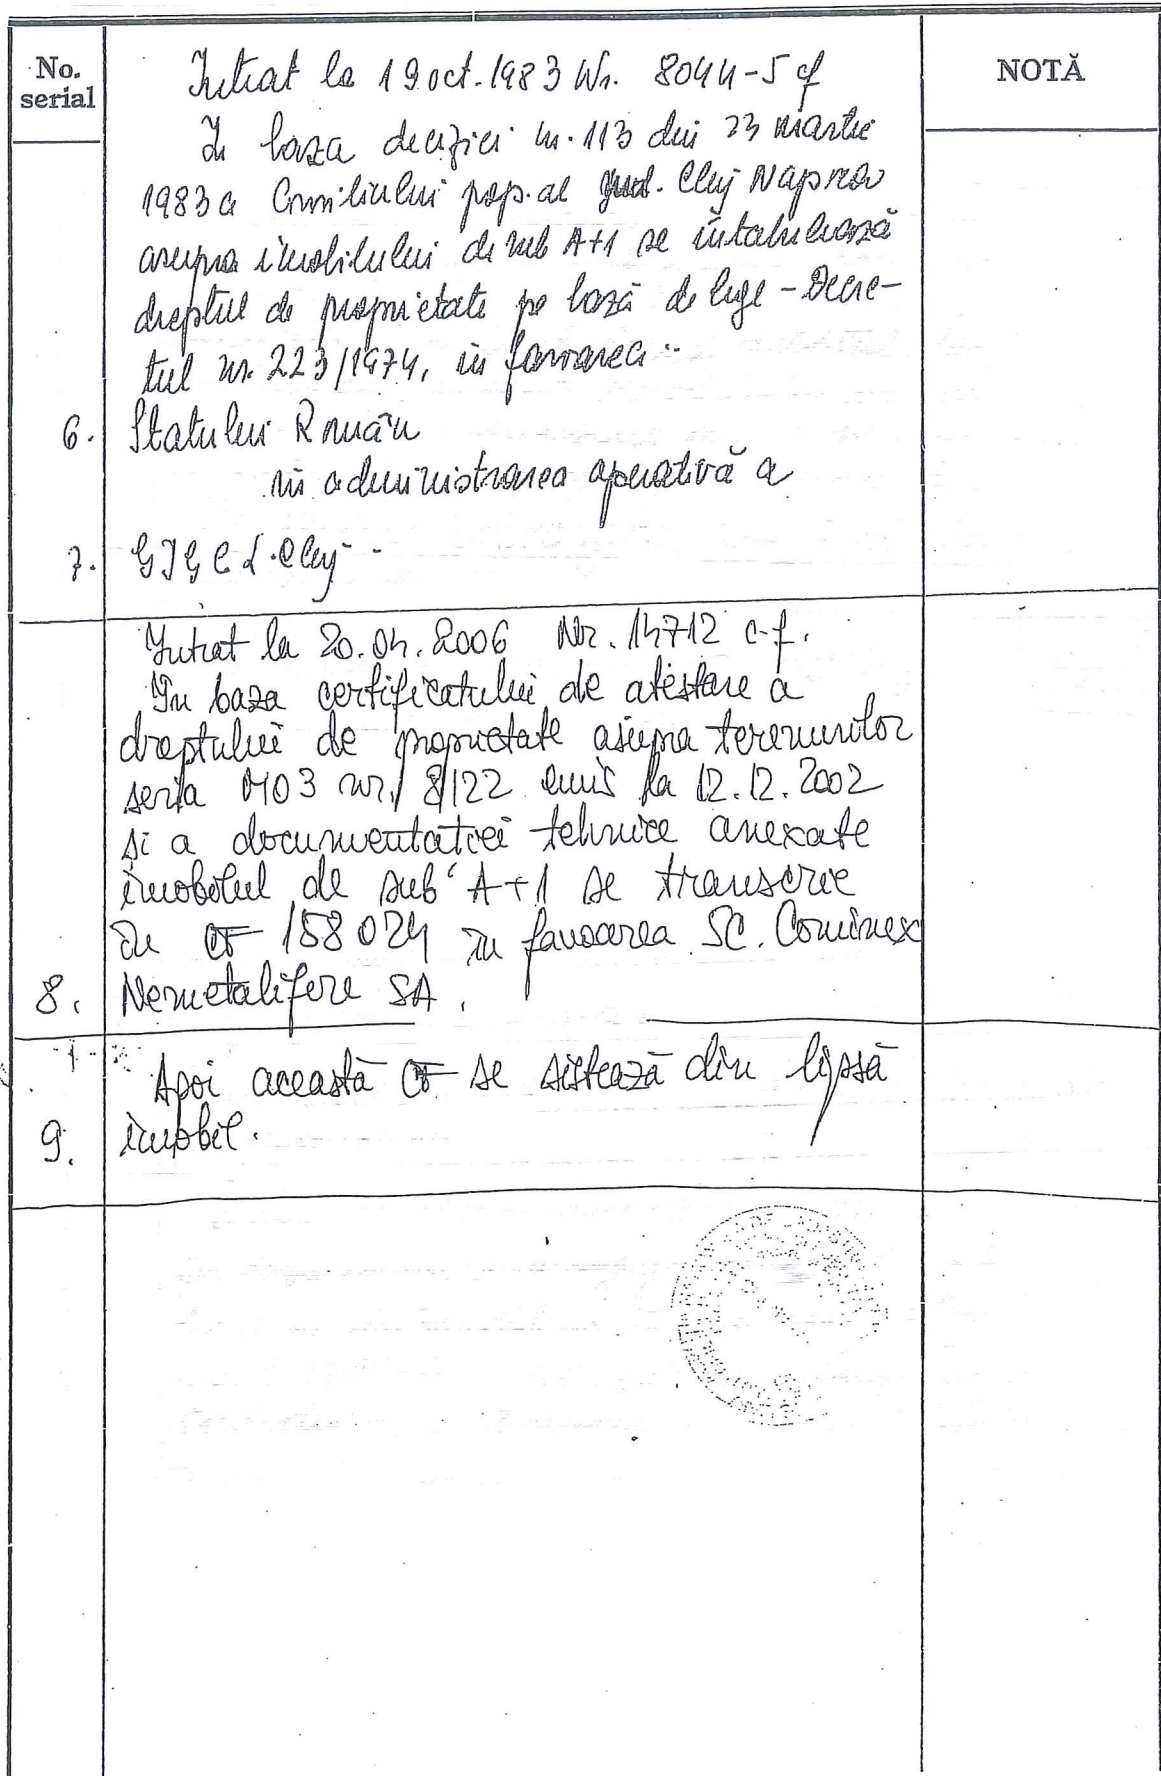 No.
serial
NOTĂ
Intrat la 19 oct. 1983 Nr. 8044-5 cf
In baza deciziei nr. 113 din 23 martie
1983 a Consiliului pop. al jud. Cluj Napoca
asupra imobilului de sub A+1 se intabulează
dreptul de proprietate pe bază de lege - Decre-
tul nr. 223/1974, in favoarea..
6. Statului Român
in administrarea operativă a
7. GIGCL. Cluj -
Intrat la 20.04.2006 Nr. 14712 c.f.
In baza certificatului de atestare a
dreptului de proprietate asupra terenurilor
seria M03 nr. 8122 emis la 12.12.2002
si a documentatiei tehnice anexate
imobilul de sub A+1 se transcrie
in CF 158024 in favoarea SC. Cominex
8. Nemetalifere SA.
Apoi această CF se sistează din lipsă
9. imobil.